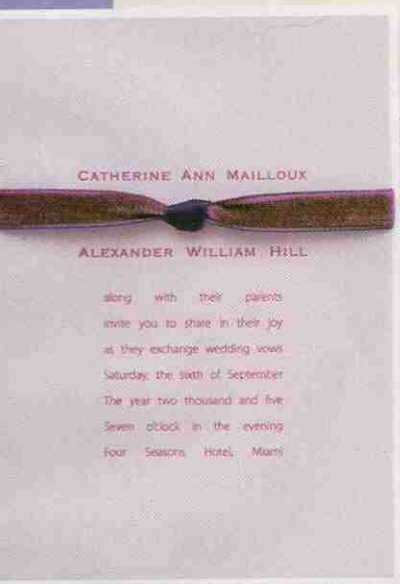 CATHERINE ANN MAILLOUX
ALEXANDER WILLIAM HILL
along with their parents
invite you to share in their joy
as they exchange wedding vows
Saturday, the sixth of September
The year two thousand and five
Seven o'clock in the evening
Four Seasons Hotel, Miami